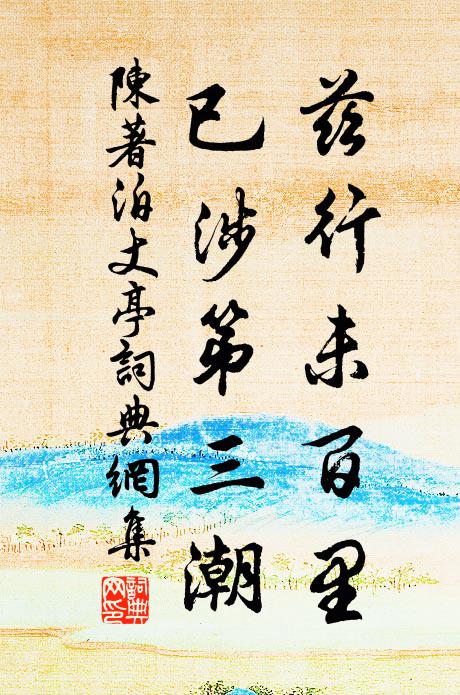 茲行未百里
已涉第三潮
陳著泊丈亭詞典網集
詞典網印